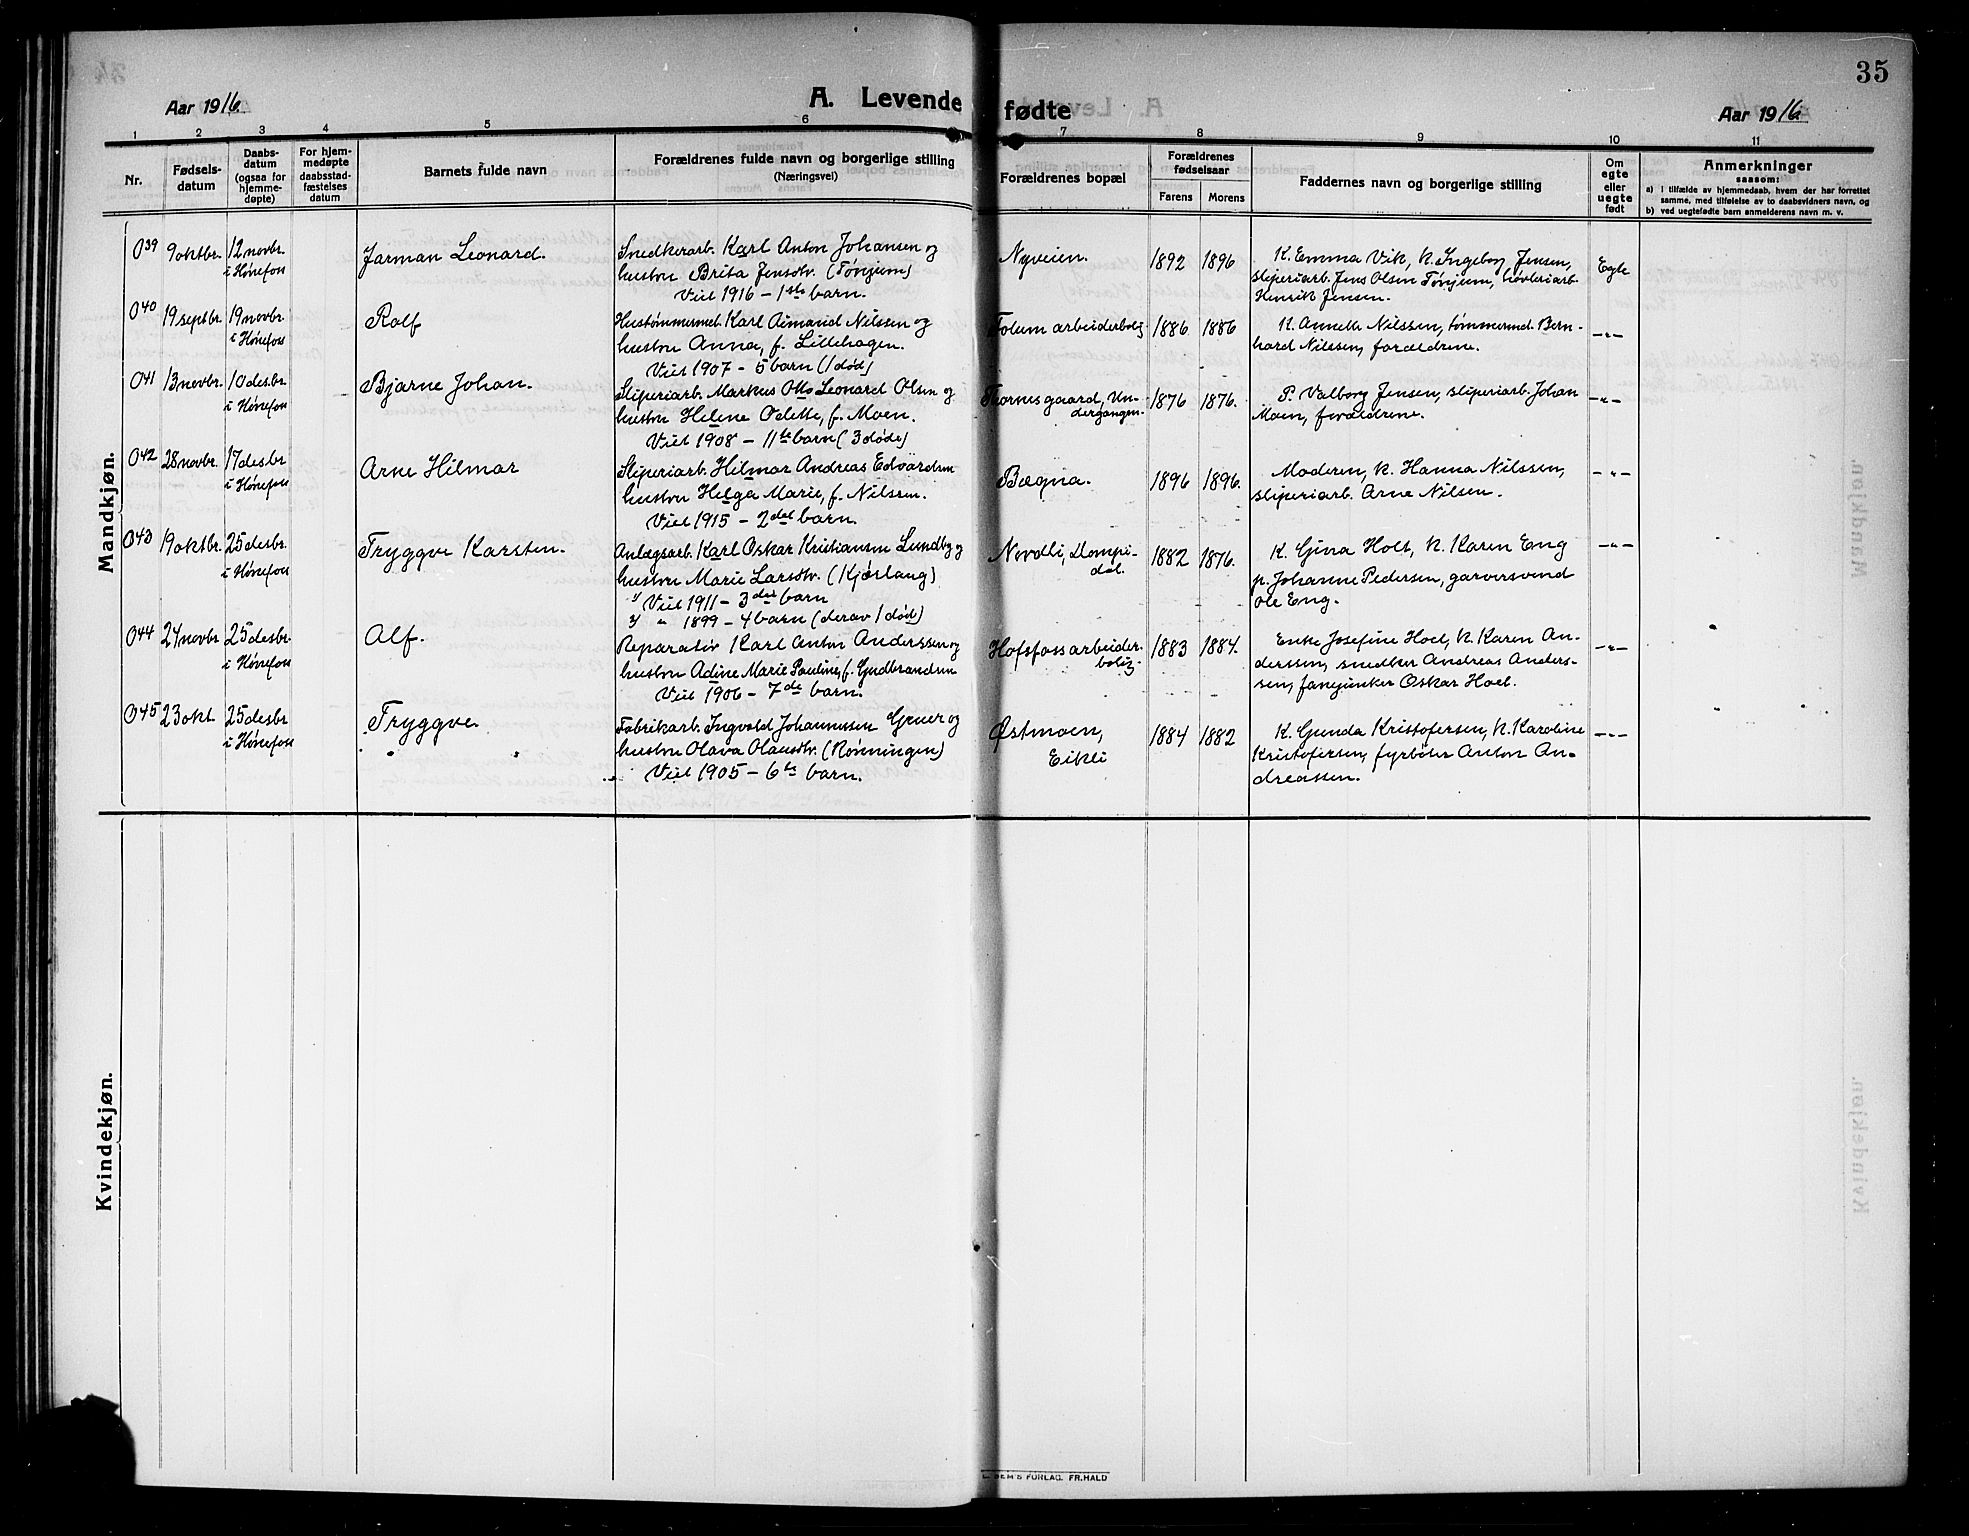 35
Aar 1916.
A. Levende fødte
Aar 1916
1 2 3 4 5 6 7 8 9 10 11
Nr.
Fødsels-
datum
Daabs-
datum
(ogsaa for
hjemme-
døpte)
For hjem-
medøpte
daabsstad-
fæstelses
datum
Barnets fulde navn
Forældrenes fulde navn og borgerlige stilling
(Næringsvei)
Forældrenes bopæl
Forældrenes
fødselsaar
Farens Morens
Faddernes navn og borgerlige stilling
Om
egte
eller
uegte
født
Anmerkninger
saasom:
a) i tilfælde av hjemmedaab, hvem der har forrettet
samme, med tilføielse av to daabsvidners navn, og
b) ved uegtefødte barn anmelderens navn m. v.
Mandkjøn.
039 9 oktbr. 12 novbr.
i Hønefoss
Jarman Leonard.
Snedkerarb. Karl Anton Johansen og
hustru Brita Jensdtr. (Tønjum)
Viet 1916 – 1ste barn.
Nyveien.
1892 1896
K. Emma Vik, k. Ingeborg Jensen,
sliperiarb. Jens Olsen Tønjum, høvleriarb.
Henrik Jensen.
Egte
040 19 septbr. 19 novbr.
i Hønefoss
Rolf
Hustømmermd. Karl Aimand Nilssen og
hustru Anna, f. Lillehagen.
Viet 1907 – 5 barn (1 død)
Follum arbeiderbolig
1886 1886
K. Annette Nilssen, tømmermd. Bern-
hard Nilssen, forældrene.
–„–
041 13 novbr. 10 desbr.
i Hønefoss
Bjarne Johan.
Sliperiarb. Markus Otto Leonard Olsen og
hustru Helene Odette, f. Moen.
Viet 1908 – 11te barn (3 døde)
Tjornesgaard, Un-
dergangen.
1876 1876.
P. Valborg Jensen, sliperiarb. Johan
Moen, forældrene.
–„–
042 28 novbr. 17 desbr
i Hønefoss
Arne Hilmar
Sliperiarb. Hilmar Andreas Edvardsen
hustru Helga Marie, f. Nilssen.
Viet 1915 – 2det barn.
Bægna.
1896 1896.
Moderen, k. Hanna Nilssen,
sliperiarb. Arne Nilsen.
–„–
043 19 oktbr. 25 desbr.
i Hønefoss
Tryggve Karsten.
Anlægsarb. Karl Oskar Kristiansen Lundby og
hustru Marie Larsdtr. (Kjøslang)
1/ Viet 1911 – 3det barn
2/ „ 1899 – 4 barn (derav 1 død)
Nordli, Dompi-
dal.
1882 1876.
K. Gina Holt, k. Karen Eng
p. Johanne Pedersen, garversvend
Ole Eng.
–„–
044 24 novbr 25 desbr.
i Hønefoss
Alf.
Reparatør Karl Anton Anderssen og
hustru Adine Marie Pauline, f. Gudbrandsen
Viet 1906 – 7de barn.
Hofsfoss arbeider-
bolig.
1883 1884.
Enke Josefine Hoel, k. Karen An-
derssen, snedker Andreas Anders-
sen, fanejunker Oskar Hoel.
–„–
045 23 okt. 25 desbr
i Hønefoss
Tryggve.
Fabrikarb. Ingvald Johannessen Gruer og
hustru Olava Olausdtr. (Rønningen)
Viet 1905 – 6te barn.
Østmoen,
Eikli
1884 1882
K. Gunda Kristofersen, k. Karoline
Kristofersen, fyrbøter Anton An-
dreassen.
–„–
Kvindekjøn.
SEM'S FORLAG. FR.HALD